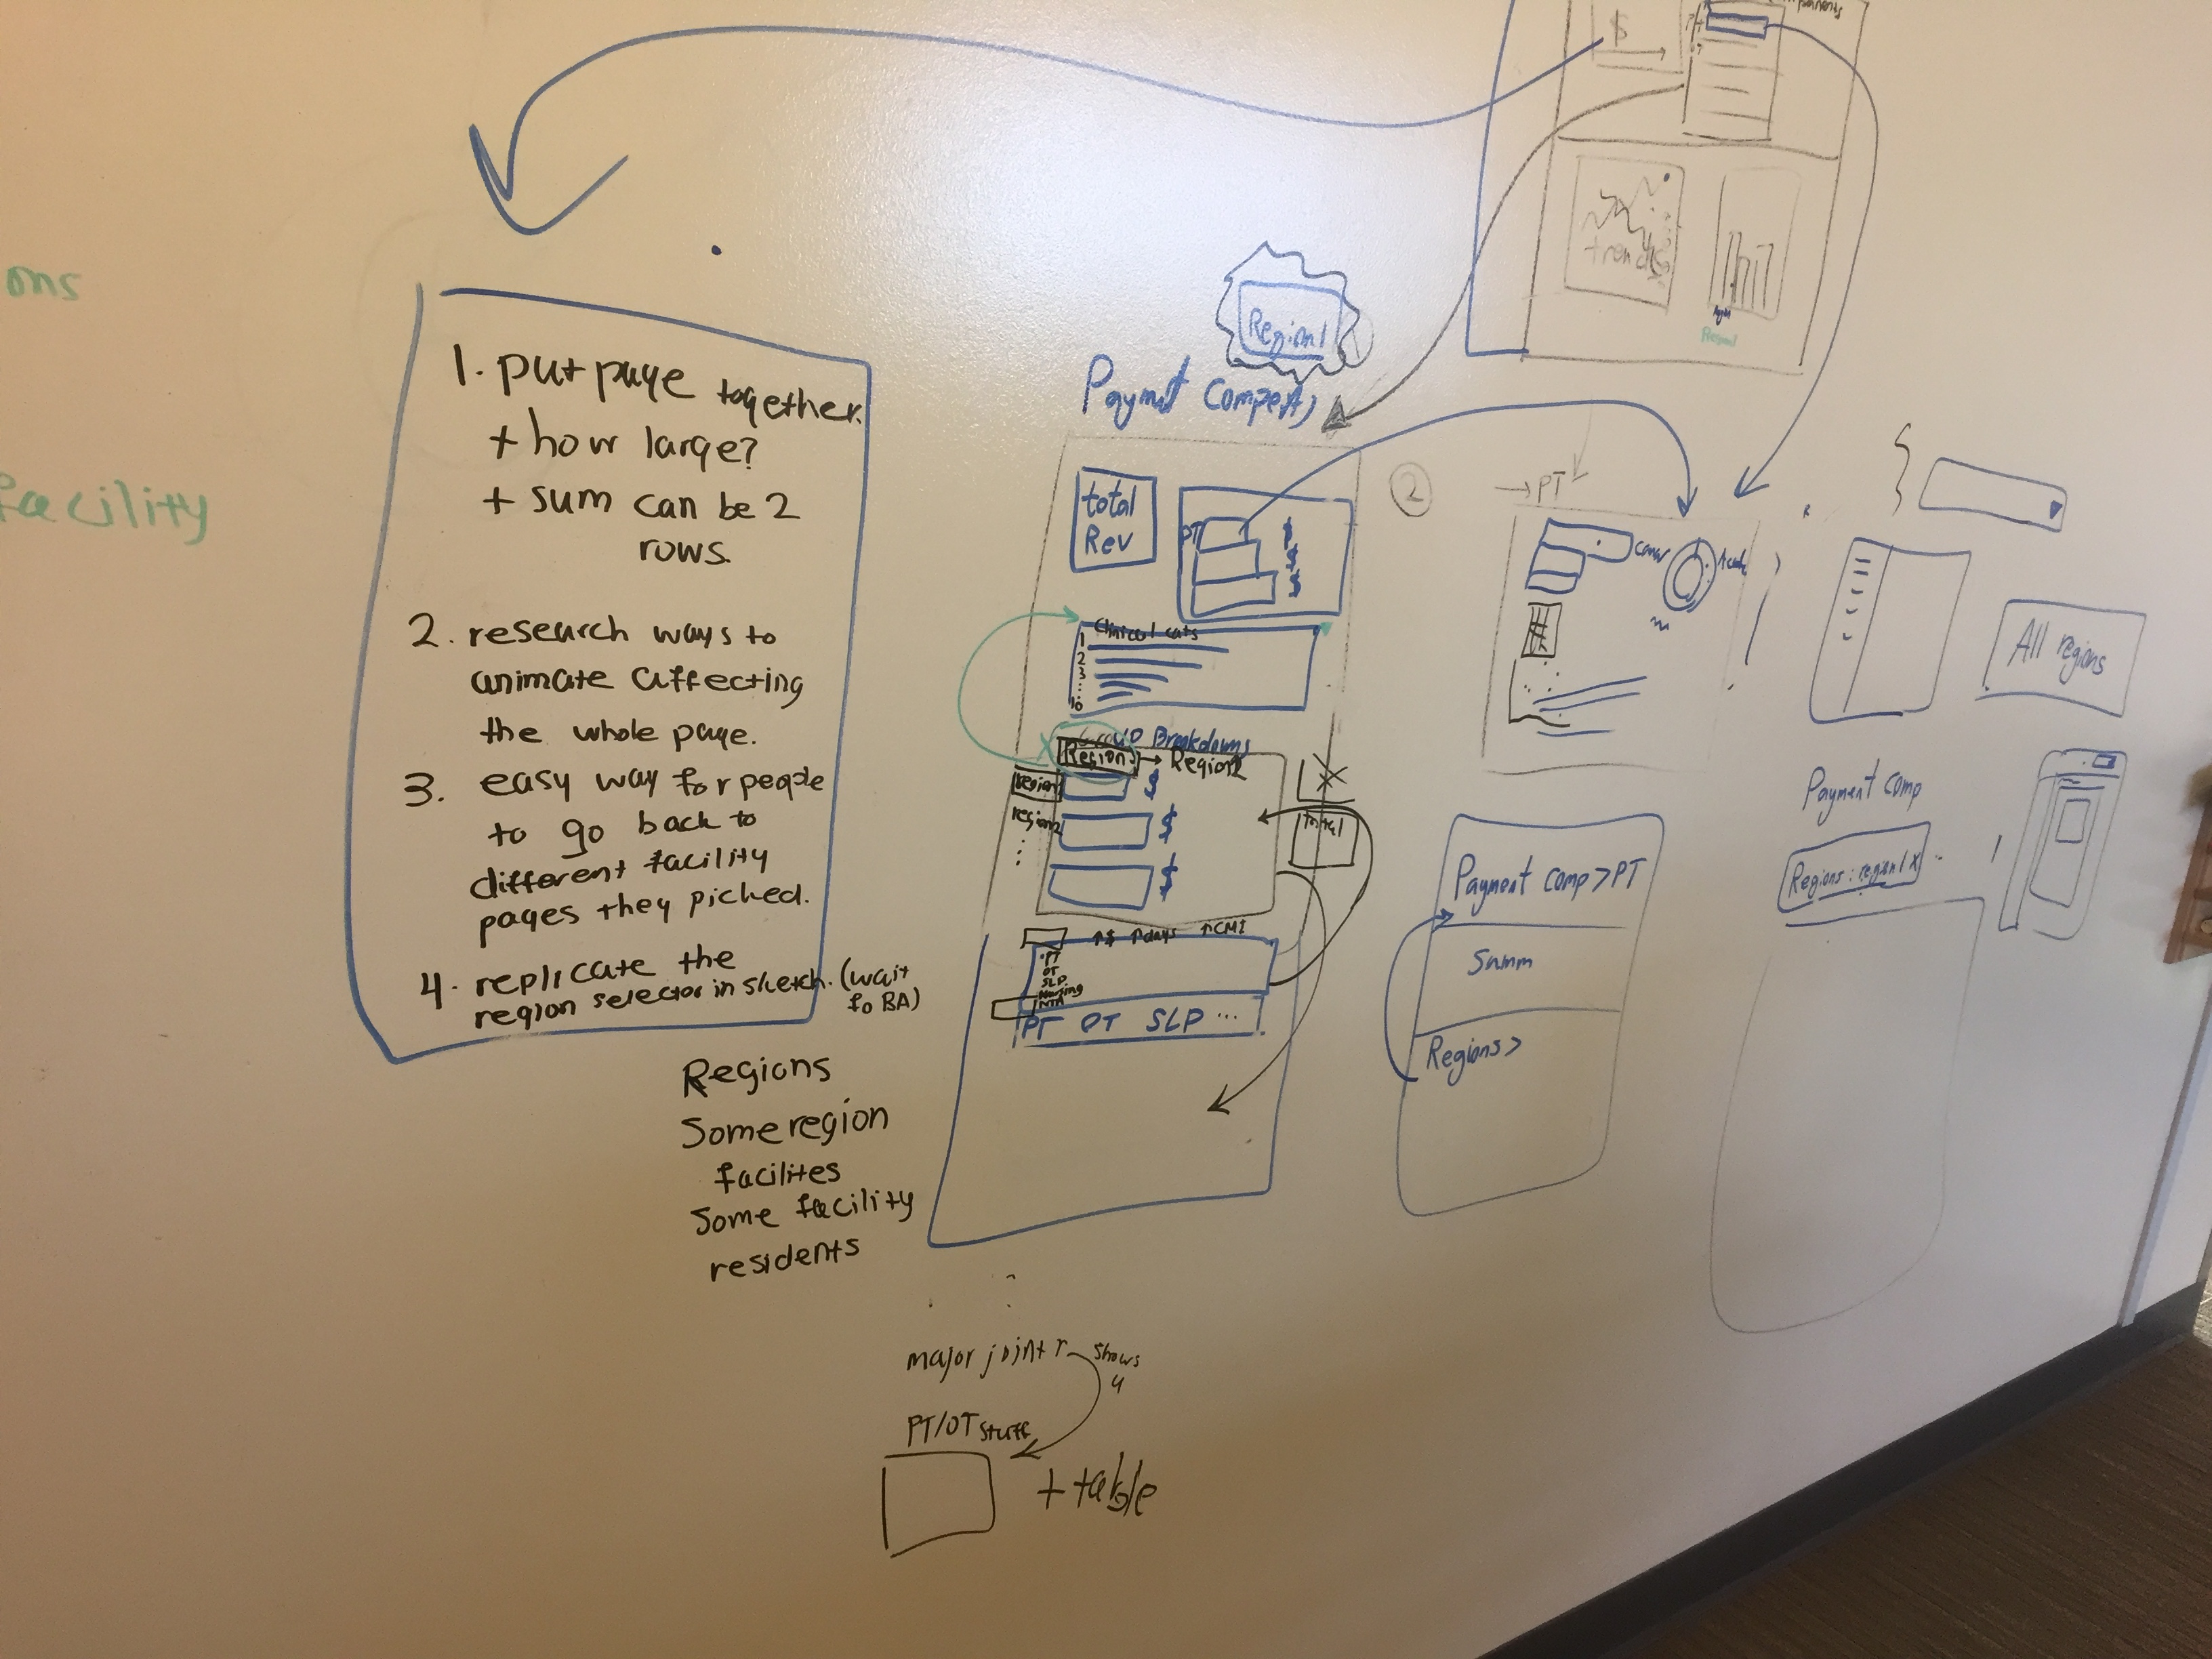 ons
facility
1. put page together.
+ how large?
+ sum can be 2
rows.
2. research ways to
animate affecting
the whole page.
3. easy way for people
to go back to
different facility
pages they picked.
4. replicate the
region selector in sketch. (wait
fo BA)
Regions
Some region
facilites
Some facility
residents
major joint r
shows
4
PT/OT stuff
+ table
$
trends
Region 1
Paymet
total
Rev
PT
$
$
$
Clinical cats
1
2
3
:
10
Breakdowns
Region → Region 2
region
region 2
:
$
$
$
total
↑$ ↑days ↑CMI
PT
OT
SLP
Nursing
NTA
PT OT SLP ...
2
→ PT
All regions
Payment comp > PT
Summ
Regions >
Payment comp
Regions: region 1 x